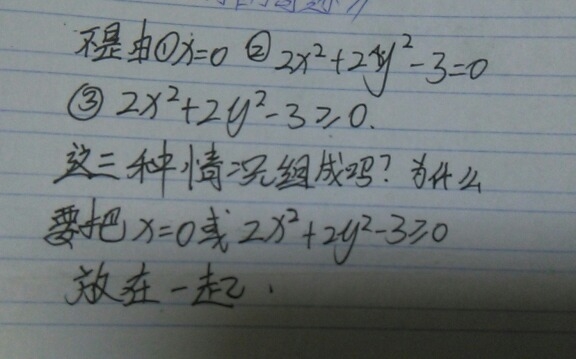 不是由①x=0 ②2x²+2y²-3=0
③ 2x²+2y²-3≥0.
这三种情况组成吗?为什么
要把x=0或2x²+2y²-3≥0
放在一起.